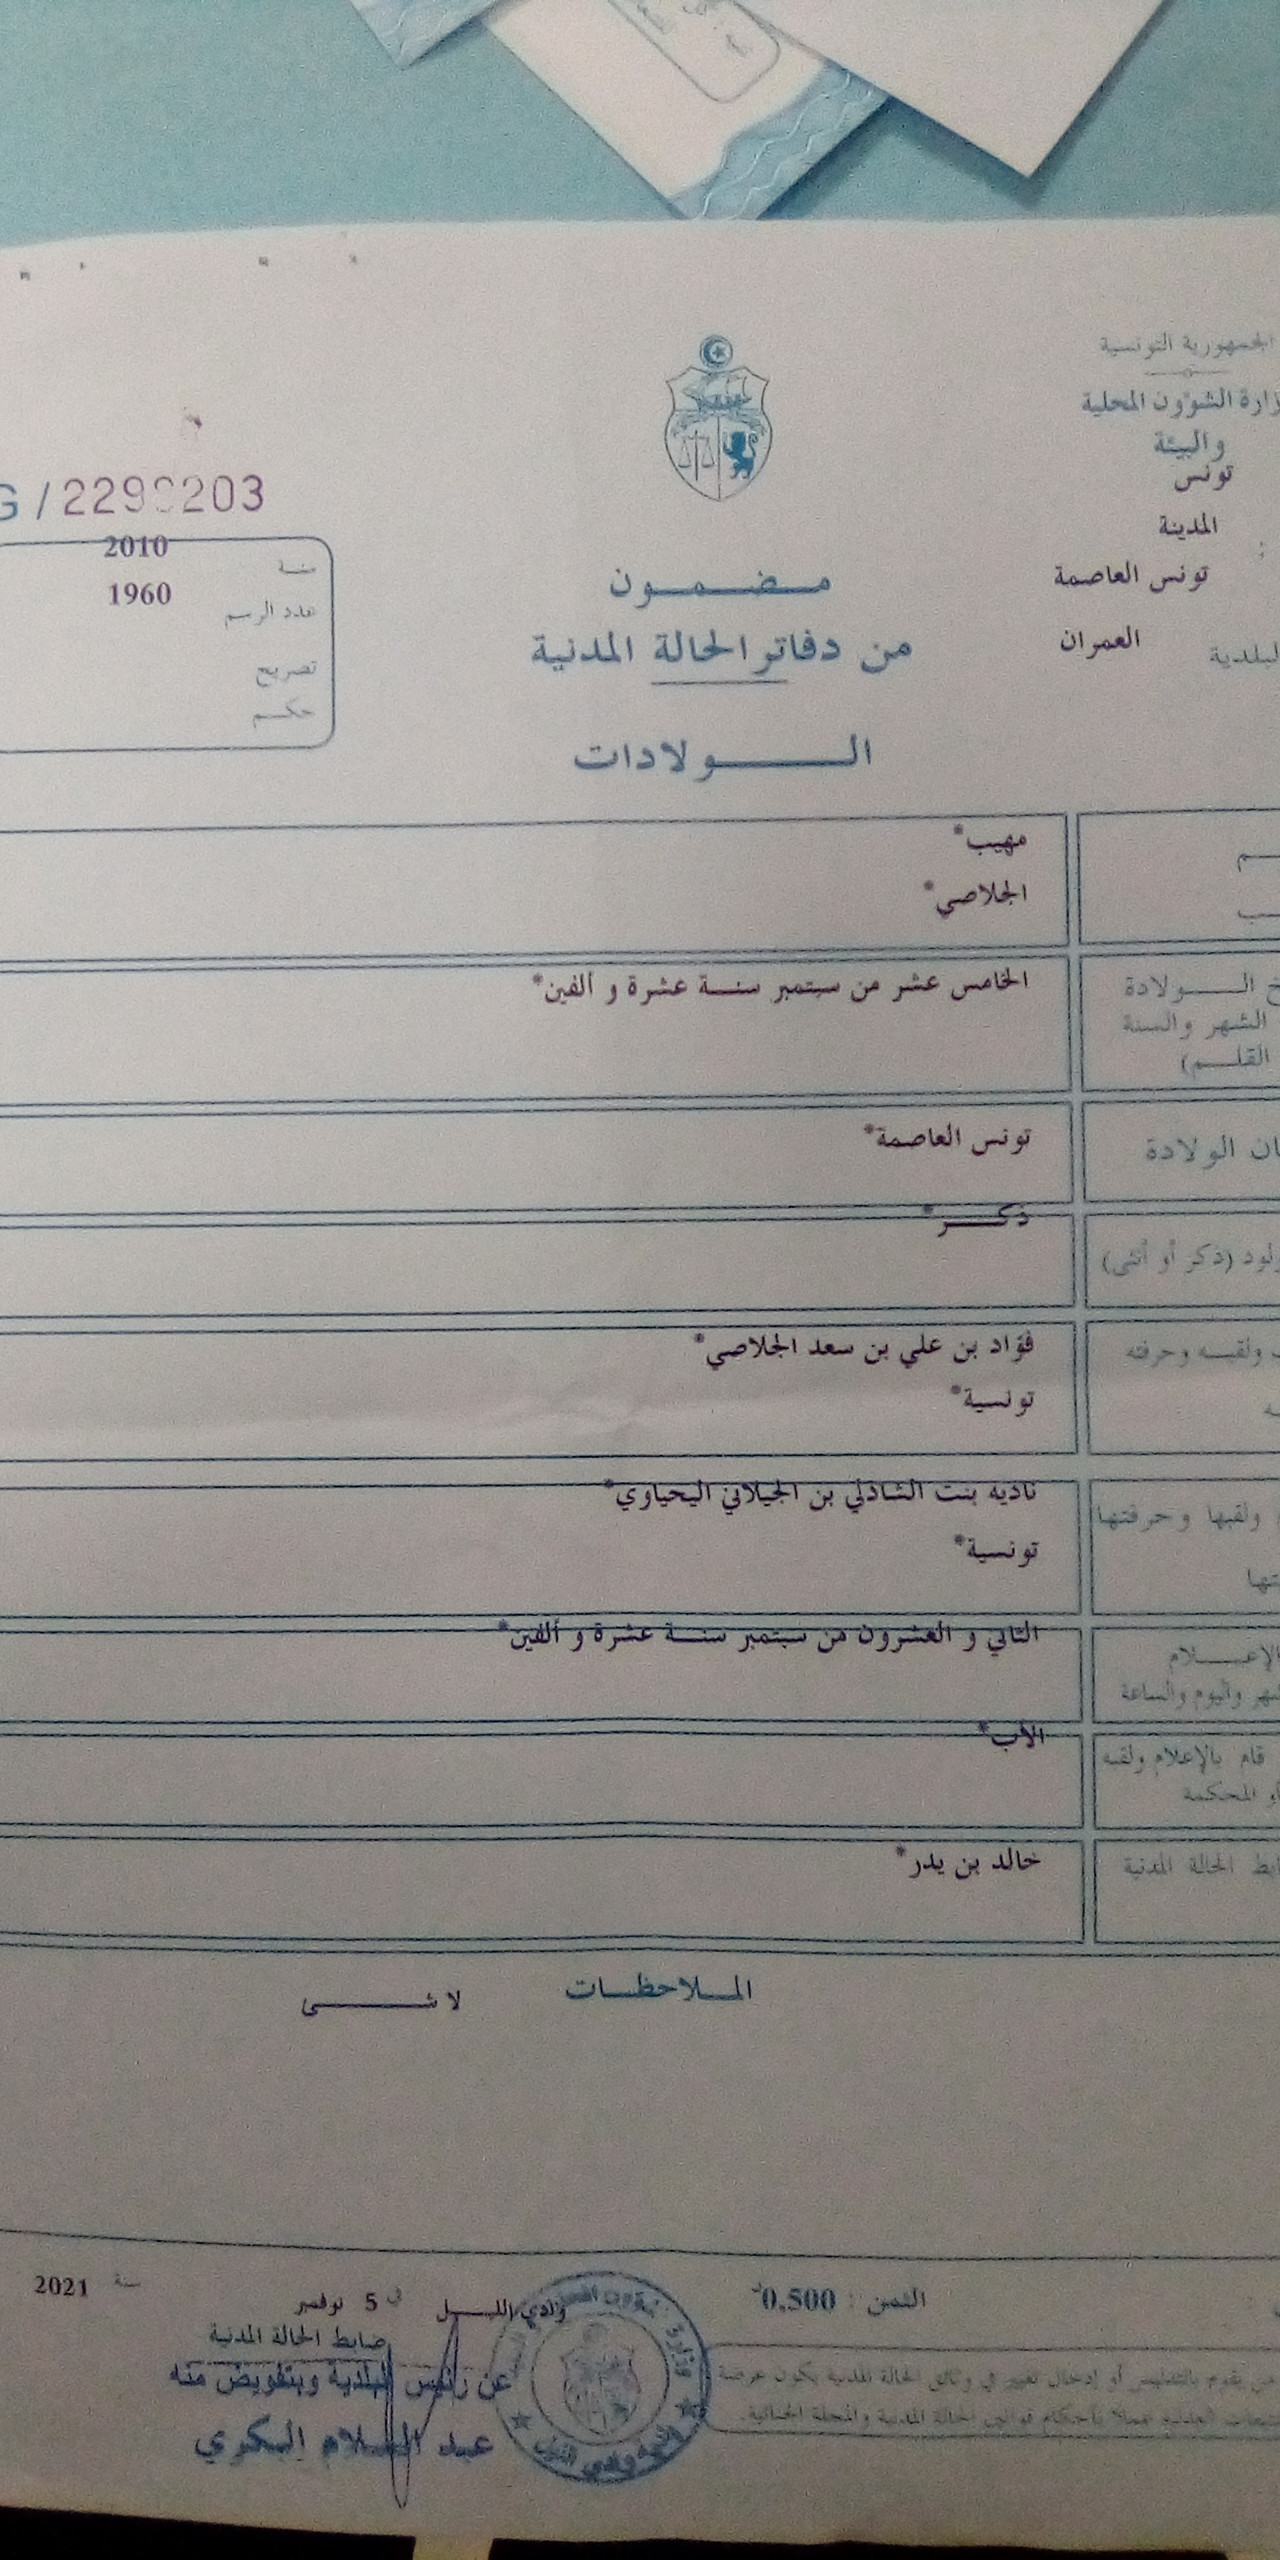 الجمهورية التونسية
وزارة الشؤون المحلية
والبيئة
تونس
المدينة
تونس العاصمة
العمران
البلدية
G / 2290203
2010
سنة
1960
عدد الرسم
تصريح
حكم
مضمون
من دفاتر الحالة المدنية
الولادات
مهيب*
الجلاصي*
الولادة
الخامس عشر من سبتمبر سنة عشرة و ألفين*
الشهر والسنة
القلم)
الولادة
تونس العاصمة*
(ذكر أو أنثى)
ذكر*
ولقبه وحرفته
فؤاد بن علي بن سعد الجلاصي*
تونسية*
ولقبها وحرفتها
نادية بنت الشاذلي بن الجيلاني اليحياوي*
تونسية*
الإعلام
الثاني و العشرون من سبتمبر سنة عشرة و ألفين*
واليوم والساعة
قام بالإعلام ولقبه
الأب*
او المحكمة
الحالة المدنية
خالد بن يدر*
الملاحظات
لا شى
الثمن : 0,500د
وادي الليل في 5 نوفمبر سنة 2021
ضابط الحالة المدنية
عن رئيس البلدية وبتفويض منه
عبد السلام البكري
من يقوم بالتدليس أو إدخال تغيير في وثائق الحالة المدنية يكون عرضة
العدلية عملا بأحكام قوانين الحالة المدنية والمجلة الجنائية.